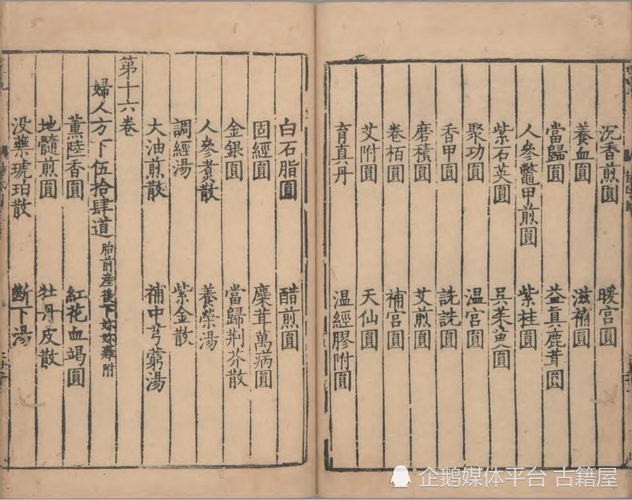 沉香煎圓 暖宮圓
養血圓 滋補圓
當歸圓 益真鹿茸圓
人參鱉甲煎圓 紫桂圓
紫石英圓 吳茱萸圓
聚功圓 温宮圓
香甲圓 詵詵圓
磨積圓 艾煎圓
卷栢圓 補宮圓
艾附圓 天仙圓
育直丹 温經膠附圓
白石脂圓 醋煎圓
固經圓 麋茸萬病圓
金銀圓 當歸荆芥散
人參煮散 養榮湯
調經湯 紫金散
大油煎散 補中芎藭湯
第十六卷
婦人方下伍拾肆道 胎前産後下 附
薰陸香圓 紅花血竭圓
地髓煎圓 牡丹皮散
没藥琥珀散 斷下湯
企鹅媒体平台 古籍屋